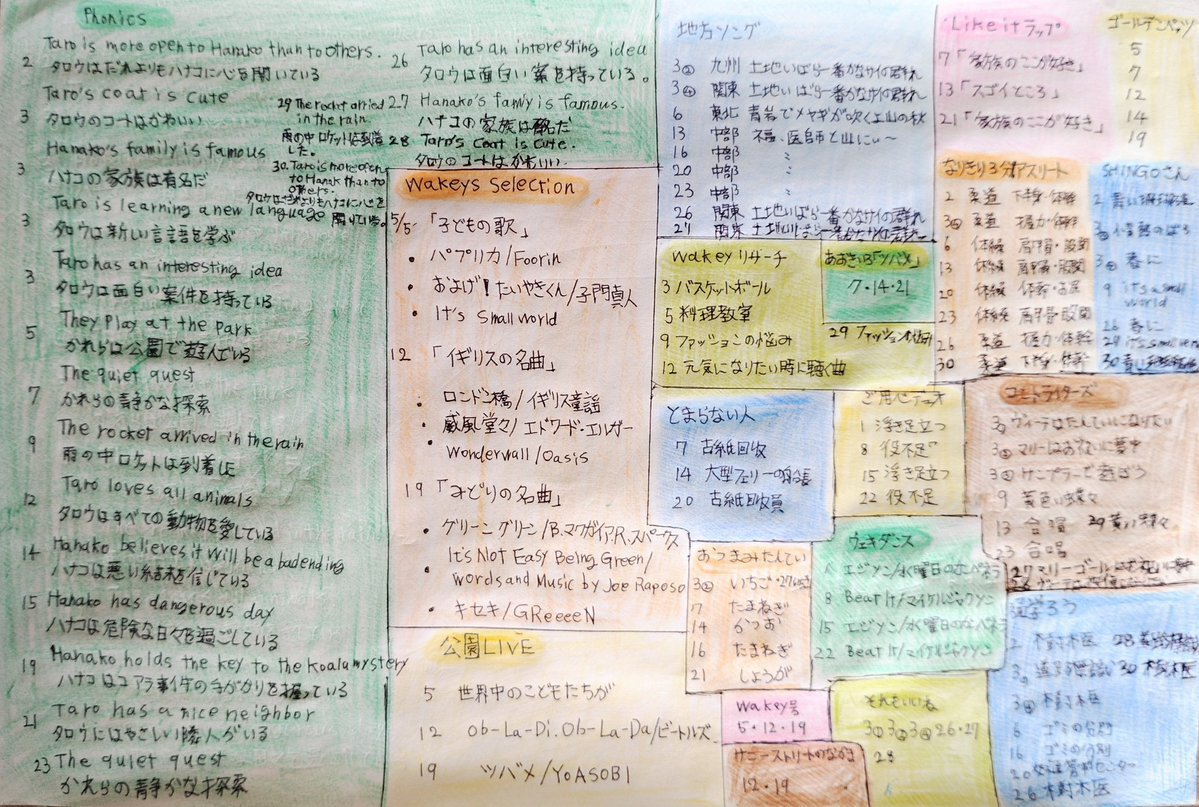 Phonics
2 Taro is more open to Hanako than to others.
タロウはだれよりもハナコに心を開いている
3 Taro's coat is cute
タロウのコートはかわいい
3 Hanako's family is famous
ハナコの家族は有名だ
3 Taro is learning a new language
タロウは新しい言語を学ぶ
3 Taro has an interesting idea
タロウは面白い案件を持っている
5 They Play at the park
かれらは公園で遊んでいる
7 The quiet quest
かれらの静かな探索
9 The rocket arrived in the rain
雨の中ロケットは到着した
12 Taro loves all animals
タロウはすべての動物を愛している
14 Hanako believes it will be a bad ending
ハナコは悪い結末を信じている
15 Hanako has dangerous day
ハナコは危険な日々を過ごしている
19 Hanako holds the key to the koala mystery
ハナコはコアラ事件の手がかりを握っている
21 Taro has a nice neighbor
タロウにはやさしい隣人がいる
23 The quiet quest
かれらの静かな探索
26 Taro has an interesting idea
タロウは面白い案を持っている。
27 Hanako's family is famous.
ハナコの家族は有名だ
28 Taro's coat is cute.
タロウのコートはかわいい
29 The rocket arrived
in the rain
雨の中ロケットは到着
した。
30. Taro is more open
to Hanak than to
others.
タロウはだれよりもハナコに心を
開いている。
Wakeys Selection
5/5 「子どもの歌」
・パプリカ/Foorin
・およげ!たいやきくん/子門真人
・It's small world
12 「イギリスの名曲」
・ロンドン橋/イギリス童謡
・威風堂々/エドワード・エルガー
・Wonderwall/Oasis
19 「みどりの名曲」
・グリーン グリーン/B.マクガイア,R.スパークス
・It's Not Easy Being Green/
words and Music by Joe Raposo
・キセキ/GReeeeN
公園LIVE
5 世界中のこどもたちが
12 Ob-La-Di.Ob-La-Da/ビートルズ
19 ツバメ/YOASOBI
地方ソング
3② 九州 土地いばら一番かなサイの群れ
3④ 関東 土地いばら一番かなサイの群れ
6 東北
13 中部
16 中部 〃
20 中部 〃
23 中部 〃
26 関東 土地いばら一番かなサイの群れ
27 関東 土地いばら一番かなサイの群れ
Wakeyリサーチ
3 バスケットボール
5 料理教室
9 ファッションの悩み
12 元気になりたい時に聴く曲
29 ファッションの悩み
あおきいろ「ツバメ」
7・14・21
とまらない人
7 古紙回収
14 大型フェリーの船長
20 古紙回収員
ご用心デュオ
1 浮き足立つ
8 役不足
15 浮き足立つ
22 役不足
おつまみたんてい
3② いちご
7 たまねぎ
14 かつお
16 たまねぎ
21 しょうが
ウェキダンス
8 Beat It/マイケルジャクソン
22 Beat It/マイケルジャクソン
Wakey号
5・12・19
サニーストリートのなかま
12・19
それもいいね
28
Likeitラップ
7「家族のここが好き」
13「スゴイところ」
21「家族のここが好き」
ゴールデンペッツ
5
7
12
14
19
なりきり3分アスリート
2 柔道 下半身・体幹
3② 柔道 握力・体幹
6 体操 肩甲骨・股関
13 体操 肩甲骨・股関
20 体操
23 体操 肩甲骨・股関
26 柔道 握力・体幹
30 柔道 下半身・体幹
SHINGOさん
3② 春に
9 it's a small
world
26 春に
コントライターズ
3② マリーはお花に夢中
9 黄色い蝶々
13 合唱
23 合唱
2 樹木医
30 樹木医
3④ 樹木医
6 ゴミの分別
16 ゴミの分別
26 樹木医